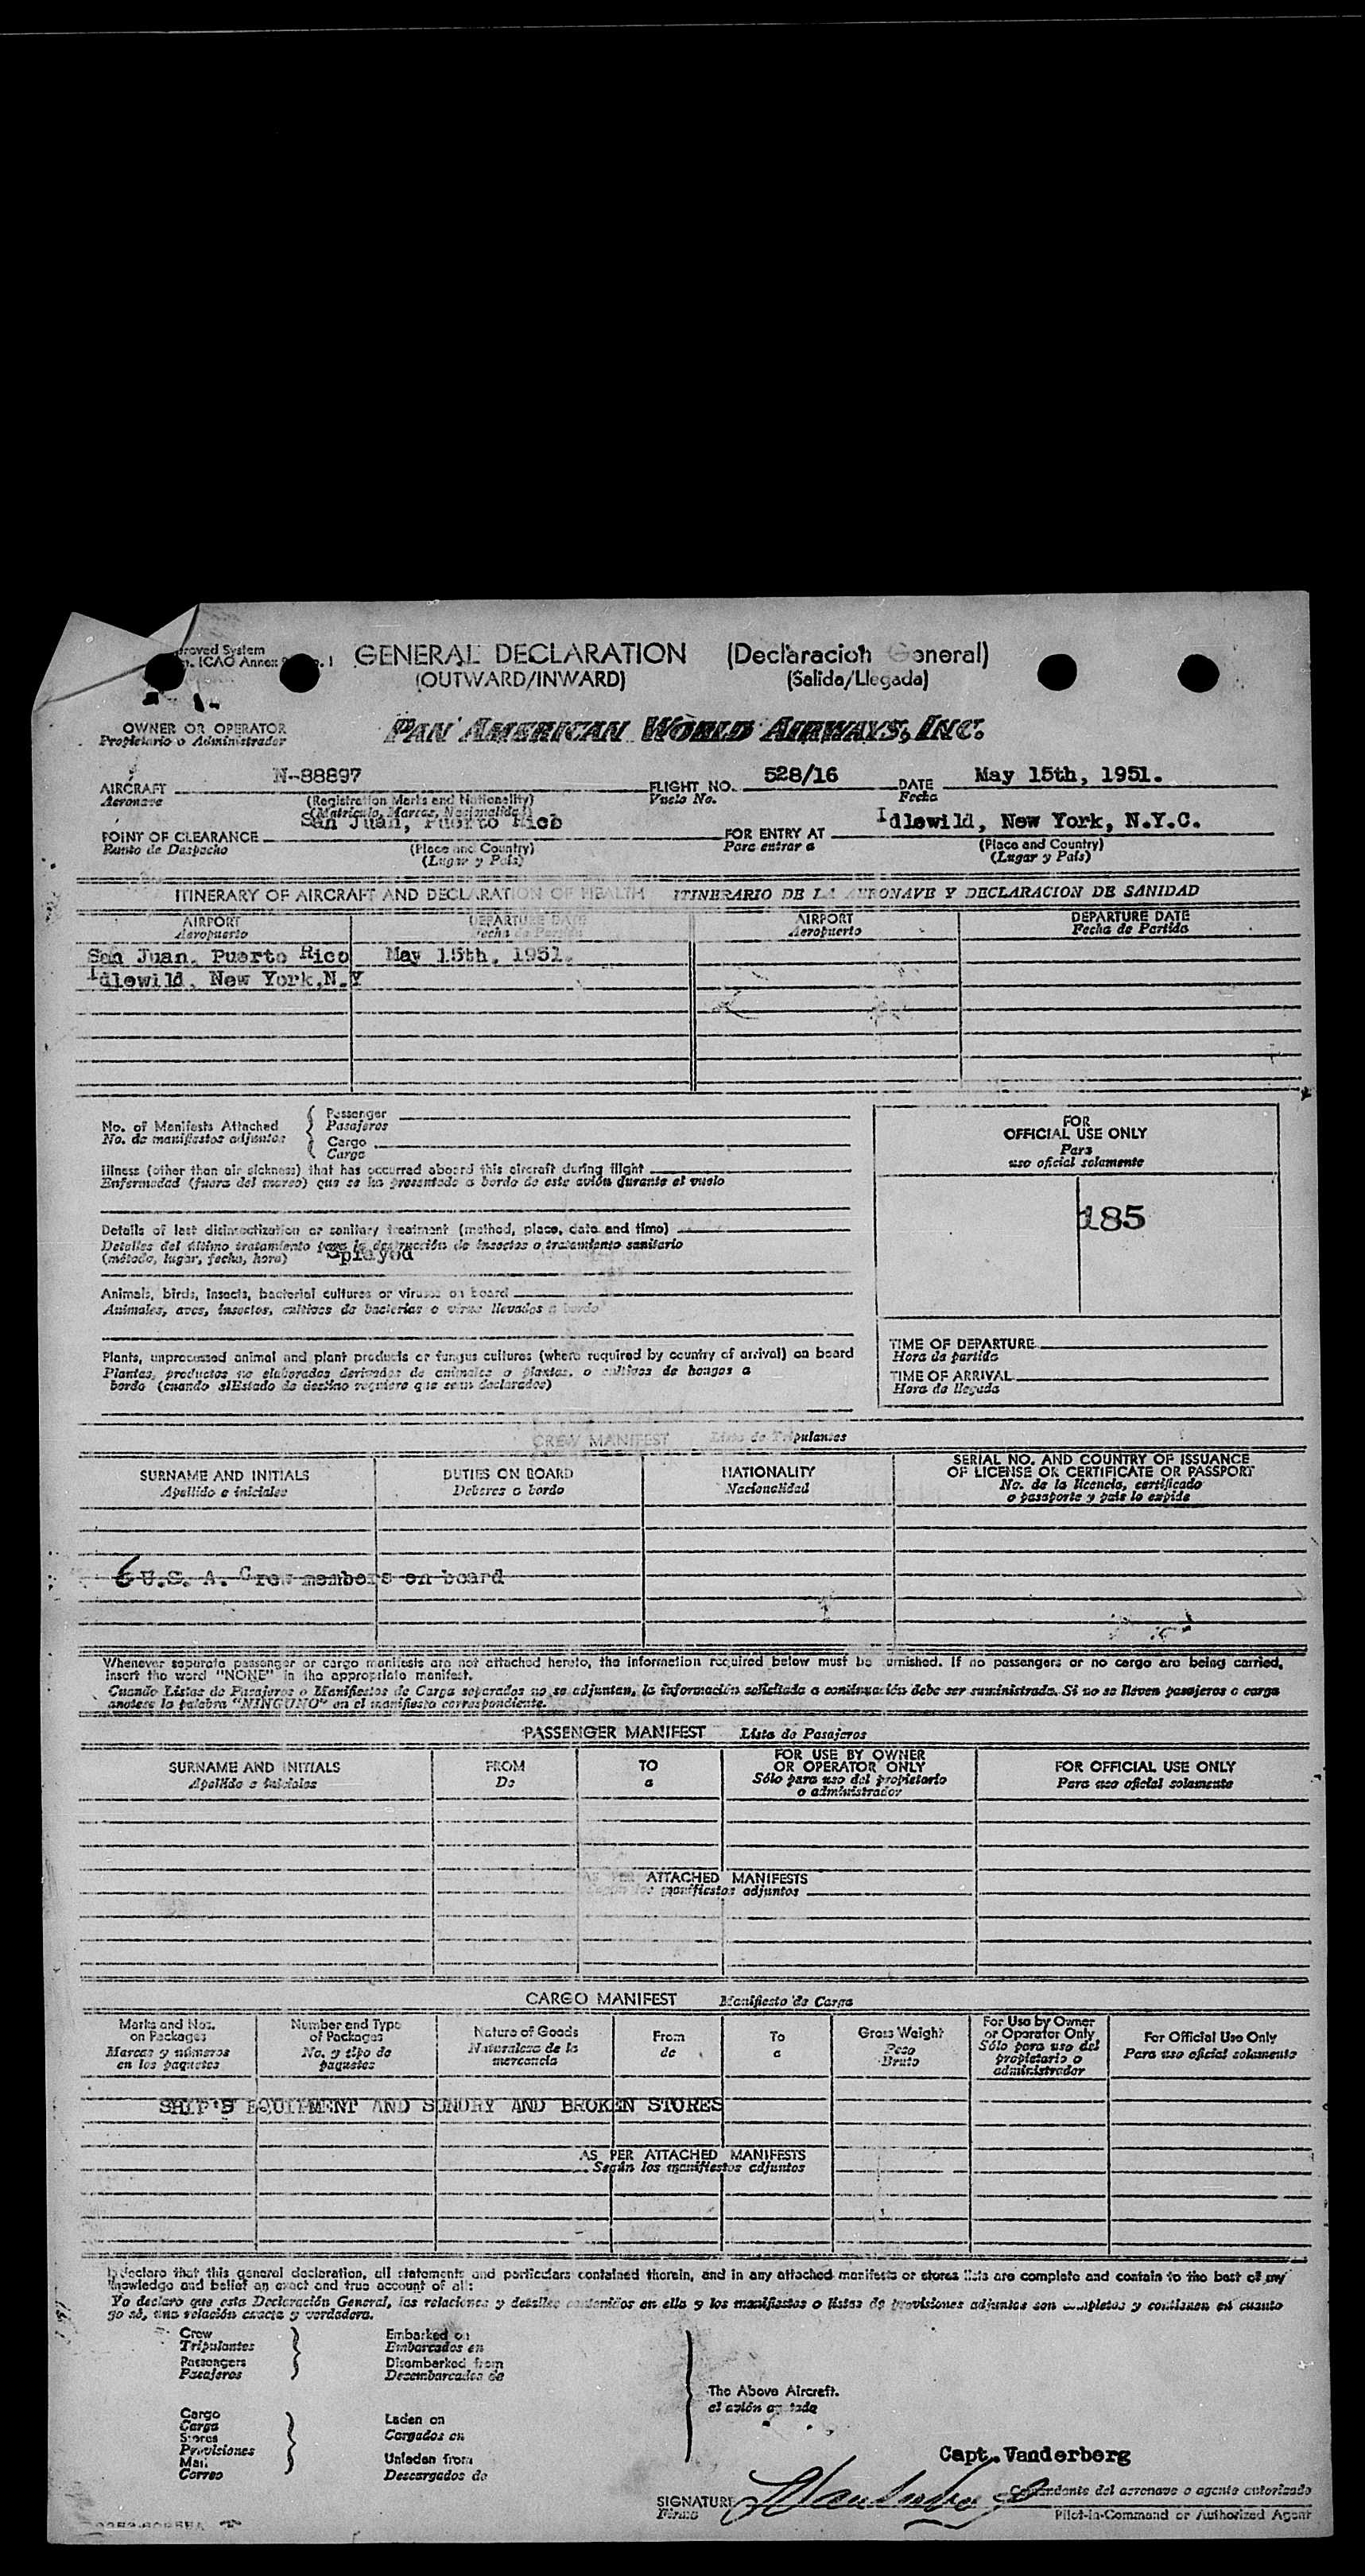 GENERAL DECLARATION (Declaracion General)
(OUTWARD/INWARD) (Salida/Llegada)
OWNER OR OPERATOR
Propietario o Administrador
PAN AMERICAN WORLD AIRWAYS, INC.
AIRCRAFT N-88897 FLIGHT NO. 528/16 DATE May 15th, 1951.
Aeronave (Registration Marks and Nationality) Vuelo No. Fecha
(Matricula, Marcas, Nacionalidad)
POINT OF CLEARANCE San Juan, Puerto Rico FOR ENTRY AT Idlewild, New York, N.Y.C.
Punto de Despacho (Place and Country) Para entrar a (Place and Country)
(Lugar y País) (Lugar y País)
ITINERARY OF AIRCRAFT AND DECLARATION OF HEALTH ITINERARIO DE LA AERONAVE Y DECLARACION DE SANIDAD
AIRPORT DEPARTURE DATE AIRPORT DEPARTURE DATE
Aeropuerto Fecha de Partida Aeropuerto Fecha de Partida
San Juan, Puerto Rico May 15th, 1951.
Idlewild, New York,N.Y
No. of Manifests Attached
No. de manifiestos adjuntos
Passenger
Pasajeros
Cargo
Carga
Illness (other than air sickness) that has occurred aboard this aircraft during flight
Enfermedad (fuera del mareo) que se ha presentado a bordo de este avión durante el vuelo
Details of last disinsectization or sanitary treatment (method, place, date and time)
Detalles del último tratamiento para la destrucción de insectos o tratamiento sanitario
(método, lugar, fecha, hora) Sprayed
Animals, birds, insects, bacterial cultures or viruses on board
Animales, aves, insectos, cultivos de bacterias o virus llevados a bordo
Plants, unprocessed animal and plant products or fungus cultures (where required by country of arrival) on board
Plantas, productos no elaborados derivados de animales o plantas, o cultivos de hongos a
bordo (cuando el Estado de destino requiere que sean declarados)
FOR
OFFICIAL USE ONLY
Para
uso oficial solamente
185
TIME OF DEPARTURE
Hora de partida
TIME OF ARRIVAL
Hora de llegada
CREW MANIFEST Lista de Tripulantes
SURNAME AND INITIALS DUTIES ON BOARD NATIONALITY SERIAL NO. AND COUNTRY OF ISSUANCE
OF LICENSE OR CERTIFICATE OR PASSPORT
Apellido e iniciales Deberes a bordo Nacionalidad No. de la licencia, certificado
o pasaporte y país lo expide
6 U.S. A. Crew members on board
Whenever separate passenger or cargo manifests are not attached hereto, the information required below must be furnished. If no passengers or no cargo are being carried,
insert the word "NONE" in the appropriate manifest.
Cuando Listas de Pasajeros o Manifiestos de Carga separados no se adjuntan, la información solicitada a continuación debe ser suministrada. Si no se lleven pasajeros o carga
anotese la palabra "NINGUNO" en el manifiesto correspondiente.
PASSENGER MANIFEST Lista de Pasajeros
SURNAME AND INITIALS FROM TO FOR USE BY OWNER
OR OPERATOR ONLY FOR OFFICIAL USE ONLY
Apellido e iniciales De a Sólo para uso del propietario
o administrador Para uso oficial solamente
AS PER ATTACHED MANIFESTS
Según los manifiestos adjuntos
CARGO MANIFEST Manifiesto de Carga
Marks and Nos.
on Packages
Marcas y números
en los paquetes
Number and Type
of Packages
No. y tipo de
paquetes
Nature of Goods
Naturaleza de la
mercancia
From
de
To
a
Gross Weight
Peso
Bruto
For Use by Owner
or Operator Only
Sólo para uso del
propietario o
administrador
For Official Use Only
Para uso oficial solamente
SHIP'S EQUIPMENT AND SUNDRY AND BROKEN STORES
AS PER ATTACHED MANIFESTS
Según los manifiestos adjuntos
I declare that this general declaration, all statements and particulars contained therein, and in any attached manifests or stores lists are complete and contain to the best of my
knowledge and belief an exact and true account of all:
Yo declaro que esta Declaración General, las relaciones y detalles contenidos en ella y los manifiestos o listas de provisiones adjuntos son completos y contienen en cuanto
yo sé, una relación exacta y verdadera.
Crew
Tripulantes
Passengers
Pasajeros
Embarked on
Embarcados en
Disembarked from
Desembarcados de
Cargo
Carga
Stores
Provisiones
Mail
Correo
Laden on
Cargados en
Unladen from
Descargados de
The Above Aircraft.
el avión
Capt. Vanderberg
SIGNATURE
Firma
Comandante del aeronave o agente autorizado
Pilot-in-Command or Authorized Agent